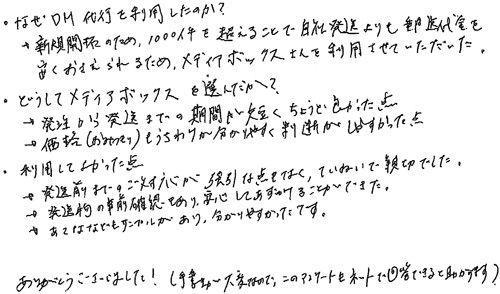 ・なぜDM代行を利用したのか？
→新規開拓のため、1000件を超えることで自社発送よりも郵送代金を
安くおさえられるため、メディアボックスさんを利用させていただいた。
・どうしてメディアボックスを選んだか？
→発注から発送までの期間が短くちょうど良かった点
→価格(お見積り)もうちわけが分かりやすく判断がしやすかった点
・利用してよかった点
→発送前までのご対応が強引な点もなく、ていねいで親切でした。
→発送物の事前確認もあり、安心してあずけることができた。
→あて名などもサンプルがあり、分かりやすかったです。
ありがとうございました！(手書きが大変なので、このアンケートもネットで回答できると助かります)